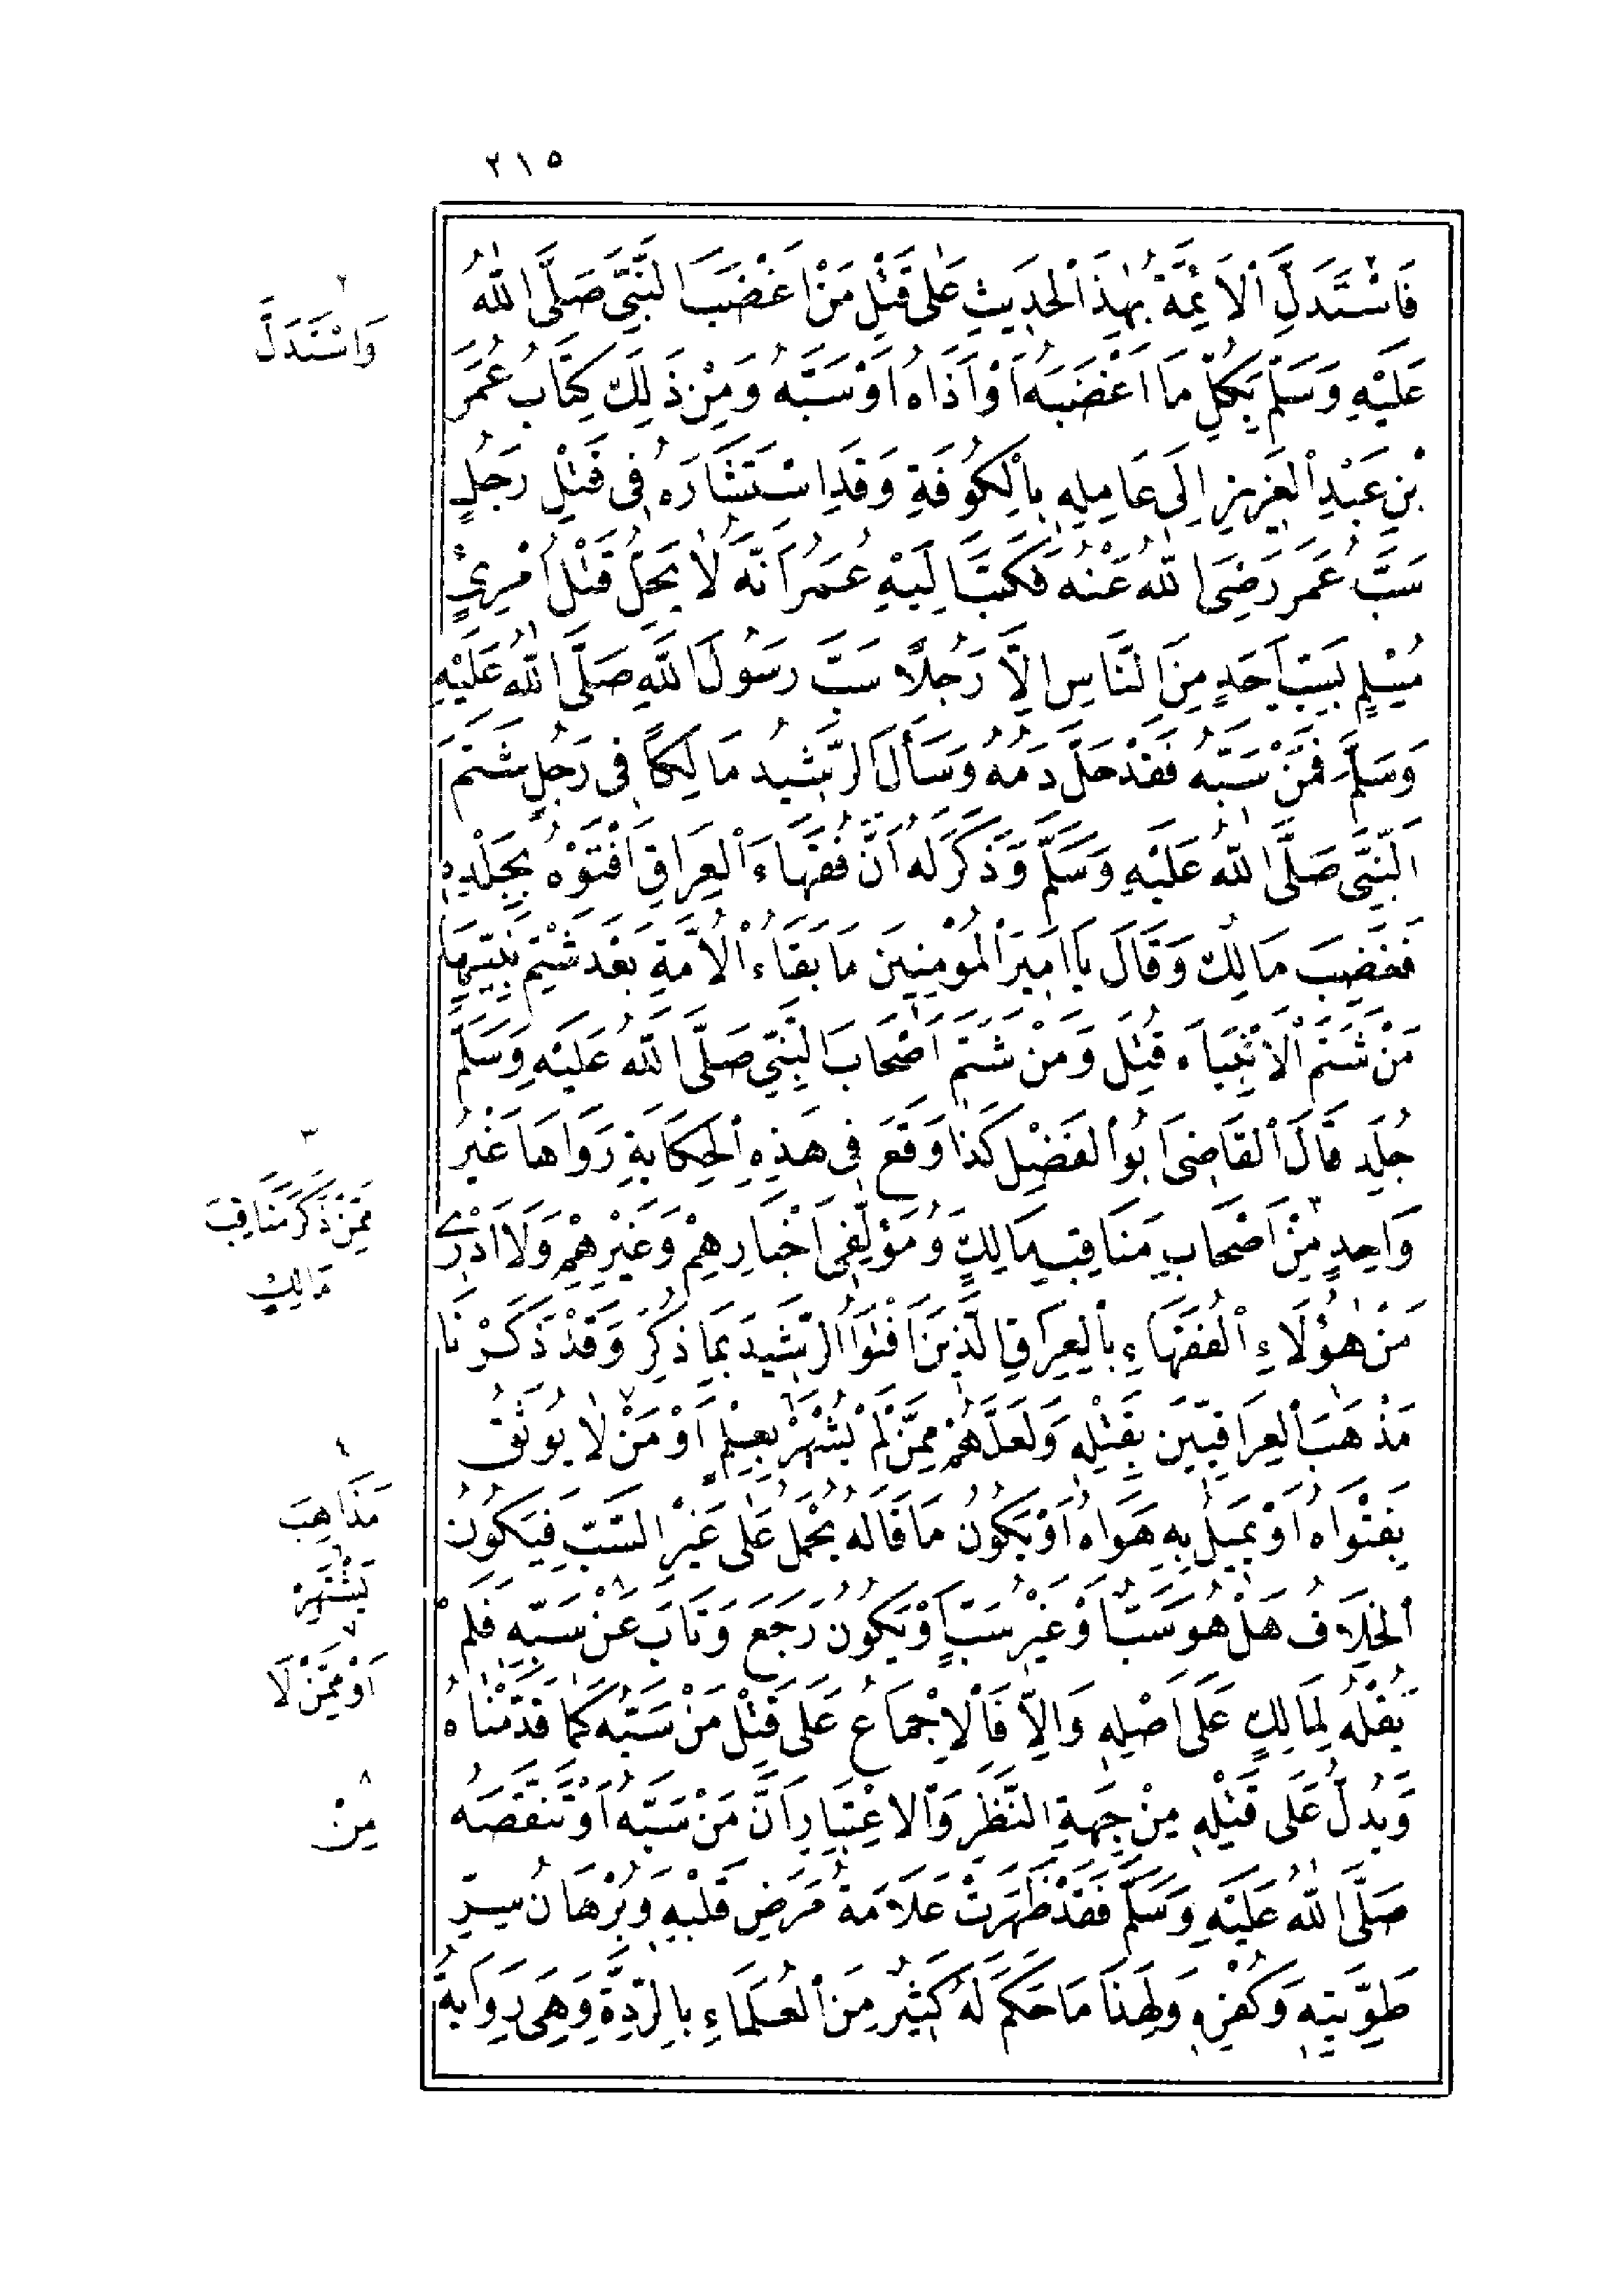 ٢١٥
فَاسْتَدَلَّ الْأَئِمَّةُ بِهٰذَا الْحَدِيثِ عَلَى قَتْلِ مَنْ أَغْضَبَ النَّبِيَّ صَلَّى اللّٰهُ
عَلَيْهِ وَسَلَّمَ بِكُلِّ مَا أَغْضَبَهُ أَوْ أَذَاهُ أَوْ سَبَّهُ وَمِنْ ذَلِكَ كِتَابُ عُمَرَ
بْنِ عَبْدِ الْعَزِيزِ إِلَى عَامِلِهِ بِالْكُوفَةِ وَقَدِ اسْتَشَارَهُ فِي قَتْلِ رَجُلٍ
سَبَّ عُمَرَ رَضِيَ اللّٰهُ عَنْهُ فَكَتَبَ إِلَيْهِ عُمَرُ أَنَّهُ لَا يَحِلُّ قَتْلُ امْرِئٍ
مُسْلِمٍ بِسَبِّ أَحَدٍ مِنَ النَّاسِ إِلَّا رَجُلًا سَبَّ رَسُولَ اللّٰهِ صَلَّى اللّٰهُ عَلَيْهِ
وَسَلَّمَ فَمَنْ سَبَّهُ فَقَدْ حَلَّ دَمُهُ وَسَأَلَ الرَّشِيدُ مَالِكًا فِي رَجُلٍ شَتَمَ
النَّبِيَّ صَلَّى اللّٰهُ عَلَيْهِ وَسَلَّمَ وَذَكَرَ لَهُ أَنَّ فُقَهَاءَ الْعِرَاقِ أَفْتَوْهُ بِجَلْدِهِ
فَغَضِبَ مَالِكٌ وَقَالَ يَا أَمِيرَ الْمُؤْمِنِينَ مَا بَقَاءُ الْأُمَّةِ بَعْدَ شَتْمِ نَبِيِّهَا
مَنْ شَتَمَ الْأَنْبِيَاءَ قُتِلَ وَمَنْ شَتَمَ أَصْحَابَ النَّبِيِّ صَلَّى اللّٰهُ عَلَيْهِ وَسَلَّمَ
جُلِدَ قَالَ الْقَاضِي أَبُو الْفَضْلِ كَذَا وَقَعَ فِي هَذِهِ الْحِكَايَةِ رَوَاهَا غَيْرُ
وَاحِدٍ مِنْ أَصْحَابِ مَنَاقِبِ مَالِكٍ وَمُؤَلِّفِي أَخْبَارِهِمْ وَغَيْرِهِمْ وَلَا أَدْرِي
مَنْ هٰؤُلَاءِ الْفُقَهَاءِ بِالْعِرَاقِ الَّذِينَ أَفْتَوُا الرَّشِيدَ بِمَا ذُكِرَ وَقَدْ ذَكَرْنَا
مَذْهَبَ الْعِرَاقِيِّينَ بِقَتْلِهِ وَلَعَلَّهُمْ مِمَّنْ لَمْ يُشْهَرْ بِعِلْمٍ أَوْ مَنْ لَا يُوثَقُ
بِفَتْوَاهُ أَوْ يَمِيلُ بِهِ هَوَاهُ أَوْ يَكُونُ مَا قَالَهُ يُحْمَلُ عَلَى غَيْرِ السَّبِّ فَيَكُونُ
الْخِلَافُ هَلْ هُوَ سَبٌّ أَوْ غَيْرُ سَبٍّ أَوْ يَكُونُ رَجَعَ وَتَابَ عَنْ سَبِّهِ فَلَمْ
يَقُلْهُ لِمَالِكٍ عَلَى أَصْلِهِ وَإِلَّا فَالْإِجْمَاعُ عَلَى قَتْلِ مَنْ سَبَّهُ كَمَا قَدَّمْنَاهُ
وَيَدُلُّ عَلَى قَتْلِهِ مِنْ جِهَةِ النَّظَرِ وَالِاعْتِبَارِ أَنَّ مَنْ سَبَّهُ أَوْ تَنَقَّصَهُ
صَلَّى اللّٰهُ عَلَيْهِ وَسَلَّمَ فَقَدْ ظَهَرَتْ عَلَامَةُ مَرَضِ قَلْبِهِ وَبُرْهَانُ سِرِّ
طَوِيَّتِهِ وَكُفْرِهِ وَلِهٰذَا مَا حَكَمَ لَهُ كَثِيرٌ مِنَ الْعُلَمَاءِ بِالرِّدَّةِ وَهِيَ رِوَايَةُ
٢
وَاسْتَدَلَّ
٣
مِمَّنْ ذَكَرَ مَنَاقِبَ
مَالِكٍ
٤
مَذَاهِبَ
يَشْتَهِرْ
٧
أَوْ مِمَّنْ لَا
٨
مِنْ